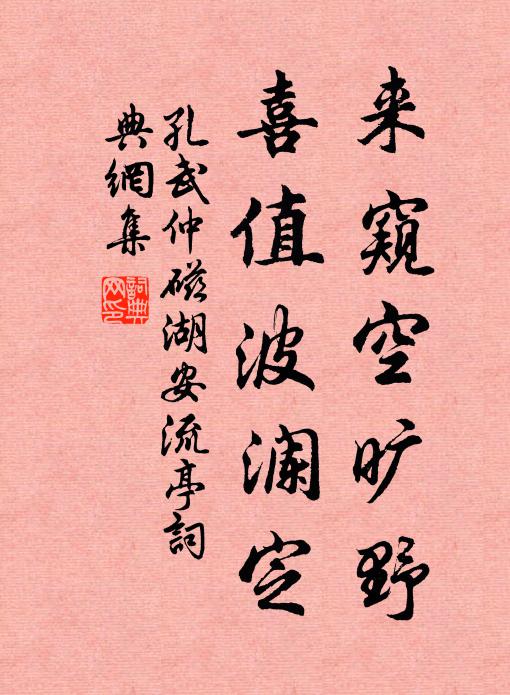 来窥空旷野
喜值波澜定
孔武仲磁湖安流亭詞
典網集
詞典
网印